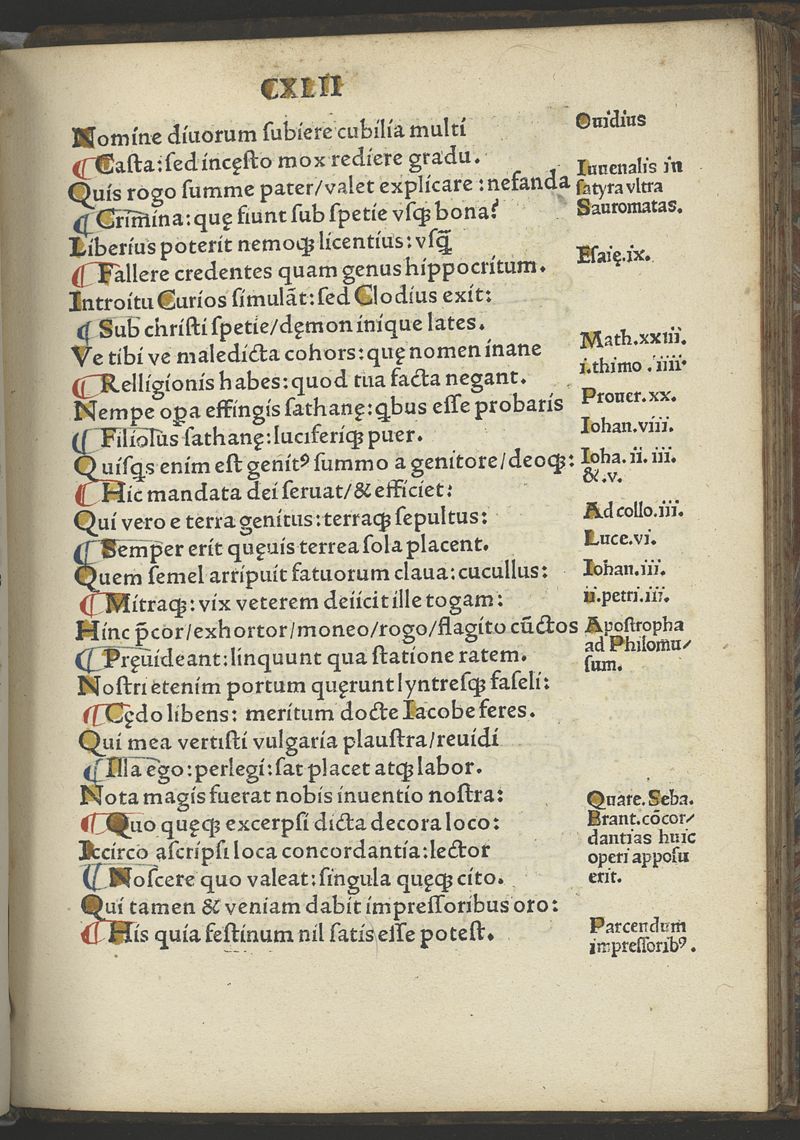 CXLII
Nomine diuorum subiere cubilia multi
¶ Casta: sed incęsto mox rediere gradu.
Quis rogo summe pater/valet explicare: nefanda
¶ Crimina: quę fiunt sub spetie vsq; bona?
Liberius poterit nemoq; licentius: vsq̃
¶ Fallere credentes quam genus hippocritum.
Introitu Curios simulãt: sed Clodius exit:
¶ Sub christi spetie/dęmon inique lates.
Ve tibi ve maledicta cohors: quę nomen inane
¶ Relligionis habes: quod tua facta negant.
Nempe oꝑa effingis sathanę: qbus esse probaris
¶ Filiolus sathanę: luciferiq; puer.
Quisqs enim est genitꝰ summo a genitore/deoq;:
¶ Hic mandata dei seruat/& efficiet:
Qui vero e terra genitus: terraq; sepultus:
¶ Semper erit quęuis terrea sola placent.
Quem semel arripuit fatuorum claua: cucullus:
¶ Mitraq;: vix veterem deiicit ille togam:
Hinc p̃cor/exhortor/moneo/rogo/flagito cũctos
¶ Pręuideant: linquunt qua statione ratem.
Nostri etenim portum quęrunt lyntresq; faseli:
¶ Cędo libens: meritum docte Iacobe feres.
Qui mea vertisti vulgaria plaustra/reuidi
¶ Illa ego: perlegi: sat placet atq; labor.
Nota magis fuerat nobis inuentio nostra:
¶ Quo quęq; excerpsi dicta decora loco:
Iccirco ascripsi loca concordantia: lector
¶ Noscere quo valeat: singula quęq; cito.
Qui tamen & veniam dabit impressoribus oro:
¶ His quia festinum nil satis esse potest.
Ouidius
Iuuenalis in
satyra vltra
Sauromatas.
Esaię.ix.
Math.xxiii.
i.thimo.iiii.
Prouer.xx.
Iohan.viii.
Ioha.ii.iii.
&.v.
Ad collo.iii.
Luce.vi.
Iohan.iii.
ii.petri.iii.
Apostropha
ad Philomu/
sum.
Quare.Seba.
Brant.cõcor/
dantias huic
operi apposu
erit.
Parcendum
impressoribꝰ.